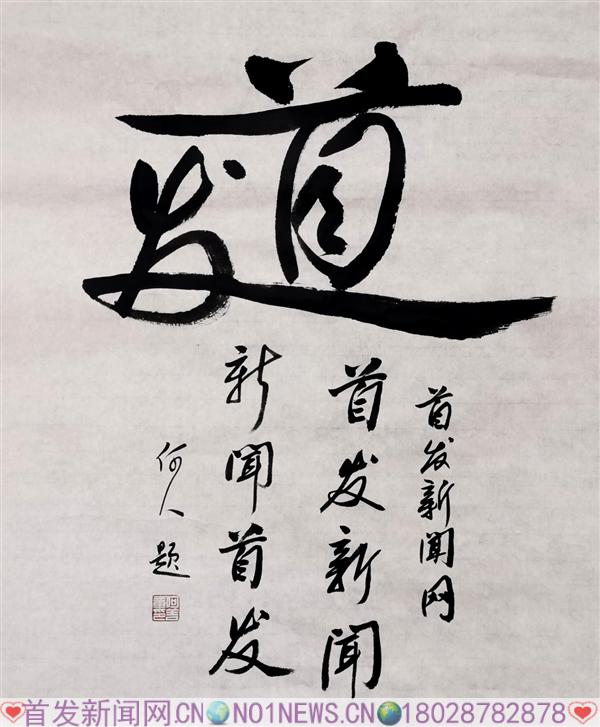 首发
首发新闻网
首发新闻
新闻首发
何人题
❤首发新闻网.CN🌏NO1NEWS.CN🌏18028782878❤